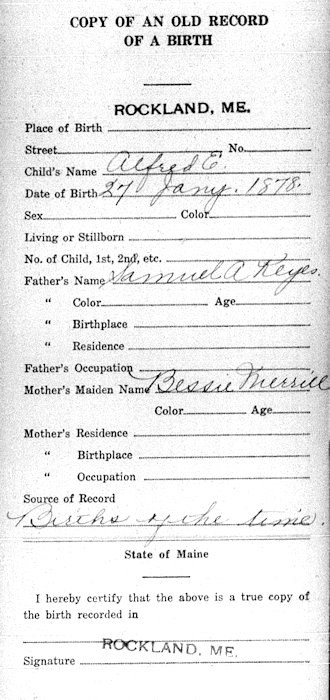 COPY OF AN OLD RECORD
OF A BIRTH
ROCKLAND, ME.
Place of Birth
Street No.
Child's Name Alfred E.
Date of Birth 27 Jany. 1878.
Sex Color
Living or Stillborn
No. of Child, 1st, 2nd, etc.
Father's Name Samuel A Keyes.
" Color Age
" Birthplace
" Residence
Father's Occupation
Mother's Maiden Name Bessie Merrill
Color Age
Mother's Residence
" Birthplace
" Occupation
Source of Record
Births of the time.
State of Maine
I hereby certify that the above is a true copy of
the birth recorded in
ROCKLAND, ME.
Signature